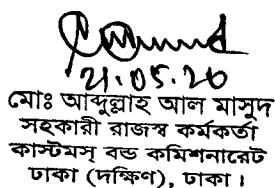 21.05.20
মোঃ আব্দুল্লাহ আল মাসুদ
সহকারী রাজস্ব কর্মকর্তা
কাস্টমস্ বন্ড কমিশনারেট
ঢাকা (দক্ষিণ), ঢাকা।